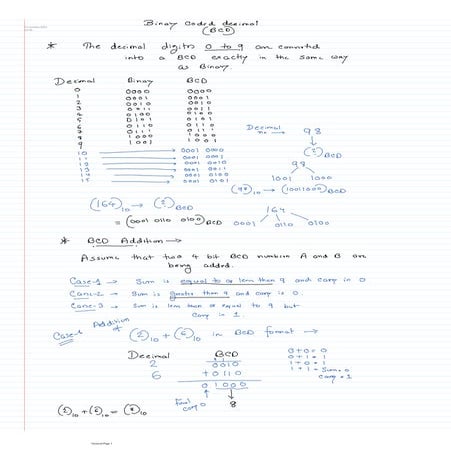 Binary coded decimal
(BCD)
* The decimal digits 0 to 9 are converted
into a BCD exactly in the same way
as Binary.
Decimal Binary BCD
0 0000 0000
1 0001 0001
2 0010 0010
3 0011 0011
4 0100 0100
5 0101 0101
6 0110 0110
7 0111 0111
8 1000 1000
9 1001 1001
10 → 0001 0000
11 → 0001 0001
12 → 0001 0010
13 → 0001 0011
14 → 0001 0100
15 → 0001 0101
Decimal no → 98
(?)BCD
98
1001 1000
(98)10 → (10011000)BCD
(164)10 → (?)BCD
= (0001 0110 0100)BCD
164
0001 0110 0100
* BCD Addition →
Assume that two 4 bit BCD numbers A and B are
being added.
Case-1 → Sum is equal to or less than 9 and carry is 0
Case-2 → Sum is greater than 9 and carry is 0.
Case-3 → Sum is less than or equal to 9 but
carry is 1.
Case-1 Addition of (2)10 + (6)10 in BCD format →
Decimal BCD
2 0010
6 +0110
0 1000
Final carry 0
8
0+0=0
0+1=1
1+0=1
1+1= Sum=0
carry=1
(2)10 + (6)10 = (8)10